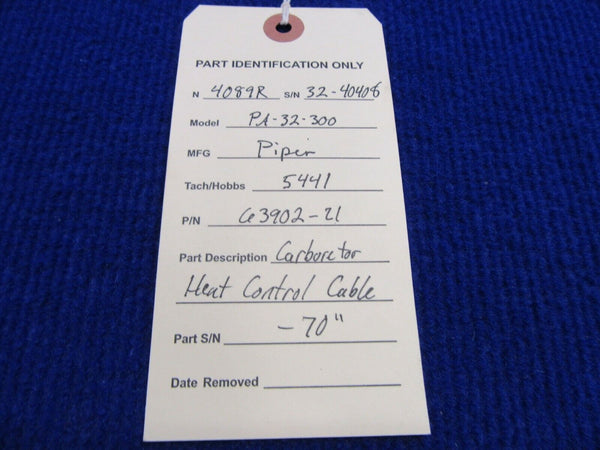 PART IDENTIFICATION ONLY
N 4089R S/N 32-40408
Model PA-32-300
MFG Piper
Tach/Hobbs 5441
P/N 63902-21
Part Description Carboretor
Heat Control Cable
Part S/N -70"
Date Removed